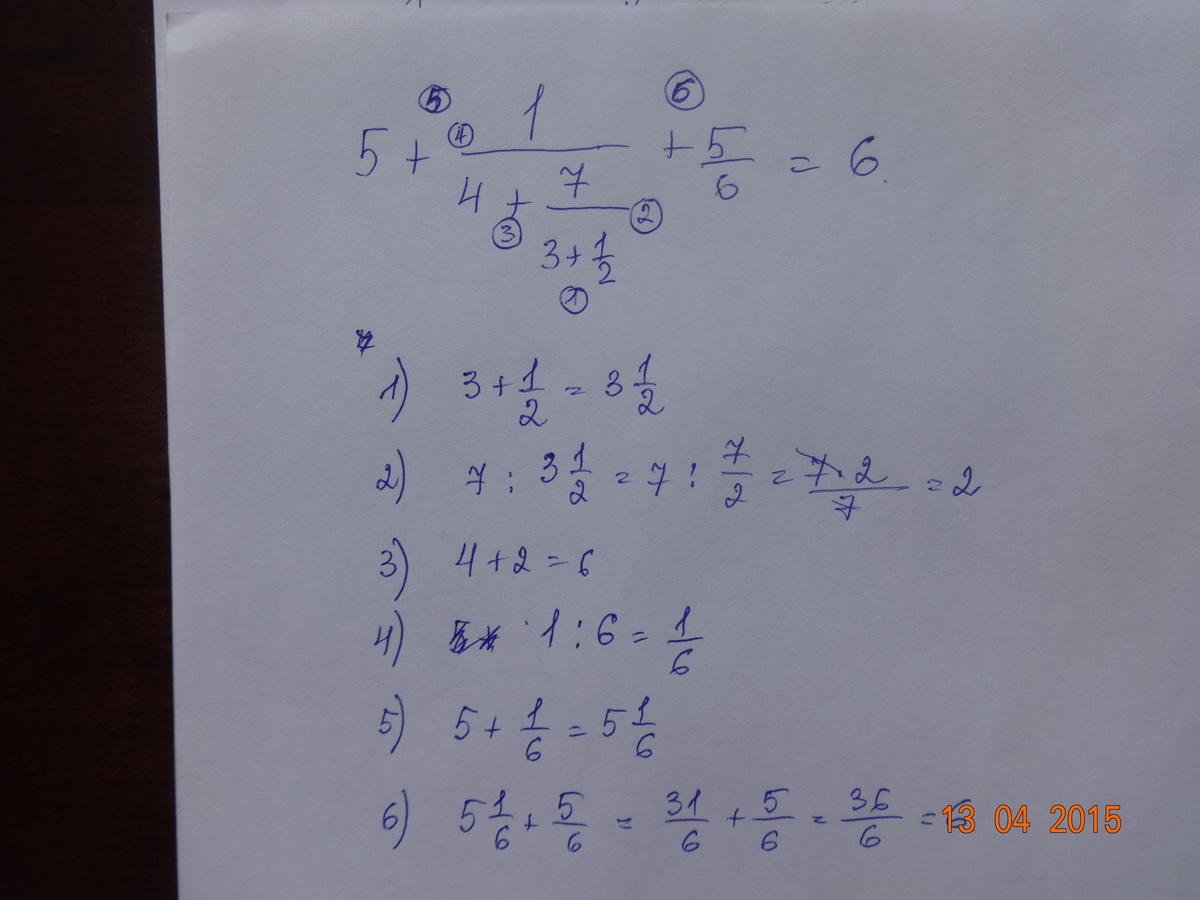 5 + \frac{1}{4 + \frac{7}{3 + \frac{1}{2}}} + \frac{5}{6} = 6.
⑤ ④ ⑥ ③ ② ①
1) 3 + \frac{1}{2} = 3 \frac{1}{2}
2) 7 : 3 \frac{1}{2} = 7 : \frac{7}{2} = \frac{7 · 2}{7} = 2
3) 4 + 2 = 6
4) 1 : 6 = \frac{1}{6}
5) 5 + \frac{1}{6} = 5 \frac{1}{6}
6) 5 \frac{1}{6} + \frac{5}{6} = \frac{31}{6} + \frac{5}{6} = \frac{36}{6} = 6
13 04 2015